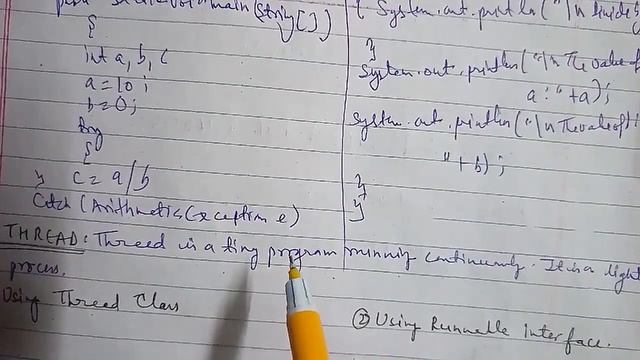 static void main(String[])
{
int a, b, c
a = 10;
b = 0;
try
{
} c = a/b
Catch (Arithmetic Exception e)
{ System.out.println("\n Divide
}
System.out.println("\n The value of
a : " + a);
System.out.println("\n The value of
" + b);
}
}
THREAD: Thread is a tiny program running continuously. It is a light
process.
Using Thread Class
② Using Runnable interface.